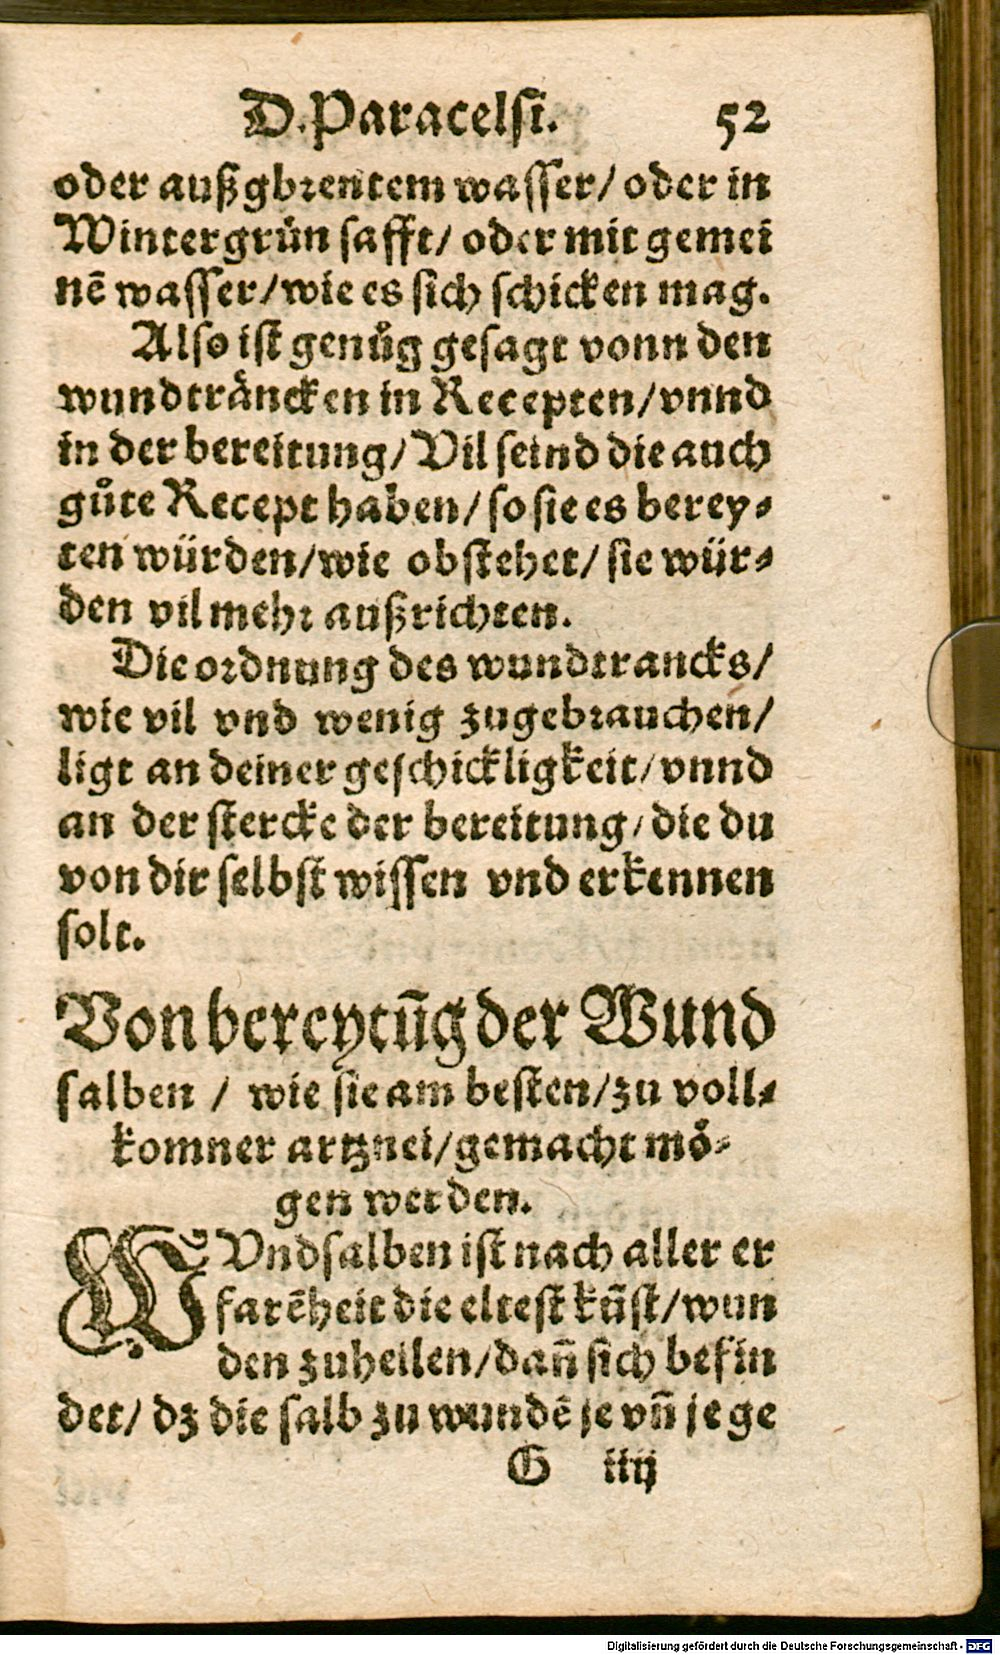 D. Paracelsi. 52
oder außgbrentem wasser/ oder in
Wintergrün safft/ oder mit gemei
nē wasser/ wie es sich schicken mag.
Also ist genůg gesagt vonn den
wundträncken in Recepten/ vnnd
in der bereitung/ Vil seind die auch
gůte Recept haben/ so sie es berey⸗
ten würden/ wie obstehet/ sie wür⸗
den vil mehr außrichten.
Die ordnung des wundtrancks/
wie vil vnd wenig zugebrauchen/
ligt an deiner geschickligkeit/ vnnd
an der stercke der bereitung/ die du
von dir selbst wissen vnd erkennen
solt.
Von bereytūg der Wund
salben / wie sie am besten/ zu voll⸗
komner artznei/ gemacht mö⸗
gen werden.
WVndsalben ist nach aller er
farēheit die eltest kūst/ wun
den zuheilen/ dañ sich befin
det/ dz die salb zu wundē je vñ je ge
G iiij
Digitalisierung gefördert durch die Deutsche Forschungsgemeinschaft - DFG